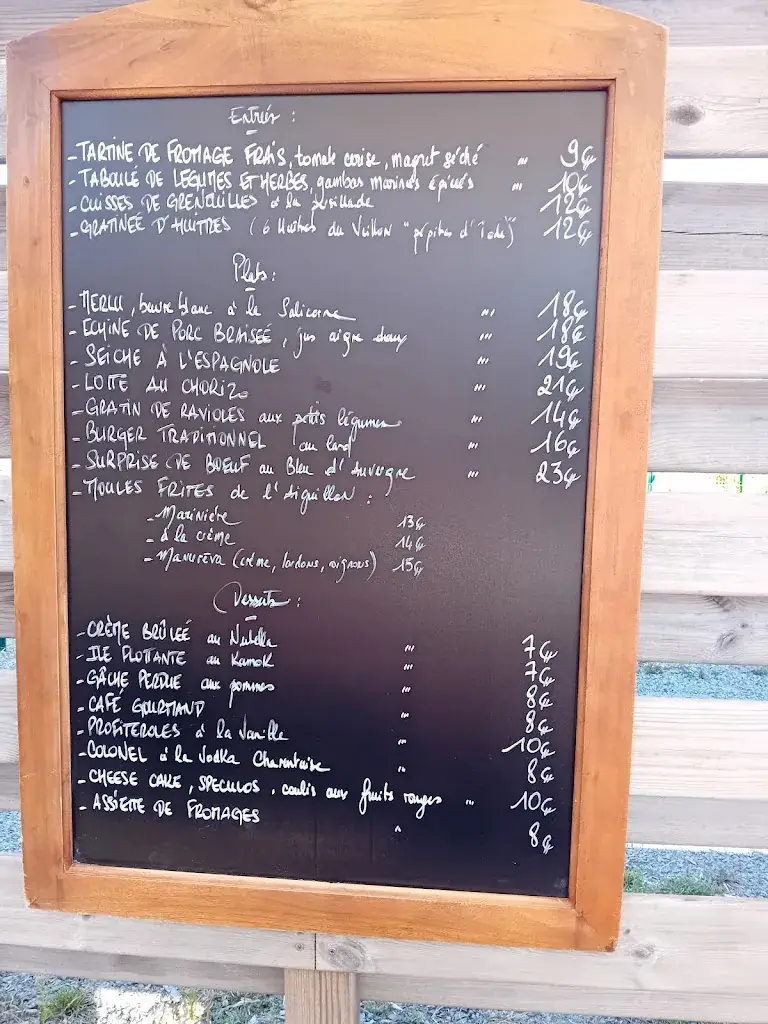 Entrées :
- TARTINE DE FROMAGE FRAIS, tomate cerise, magret séché " 9€
- TABOULÉ DE LEGUMES ET HERBES, gambas marinées épicées " 10€
- CUISSES DE GRENOUILLES à la persillade 12€
- GRATINÉE D'HUITRES (6 Huîtres du Veillon "pépites d'Iodé") 12€
Plats :
- MERLU, beurre blanc à la Salicorne " 18€
- ECHINE DE PORC BRAISEÉ, jus aigre doux " 18€
- SEICHE À L'ESPAGNOLE " 19€
- LOTTE AU CHORIZO " 21€
- GRATIN DE RAVIOLES aux petits légumes " 14€
- BURGER TRADITIONNEL au lard " 16€
- SURPRISE DE BOEUF au Bleu d'Auvergne " 23€
- MOULES FRITES de l'Aiguillon :
- Marinière 13€
- à la crème 14€
- Manureva (crème, lardons, oignons) 15€
Desserts :
- CRÈME BRÛLEÉ au Nutella " 7€
- ILE FLOTTANTE au Kamok " 7€
- GÂCHE PERDUE aux pommes " 8€
- CAFÉ GOURMAND " 8€
- PROFITEROLES à la Vanille " 10€
- COLONEL à la Vodka Charentaise " 8€
- CHEESE CAKE, SPECULOS, coulis aux fruits rouges " 10€
- ASSIETTE DE FROMAGES " 8€